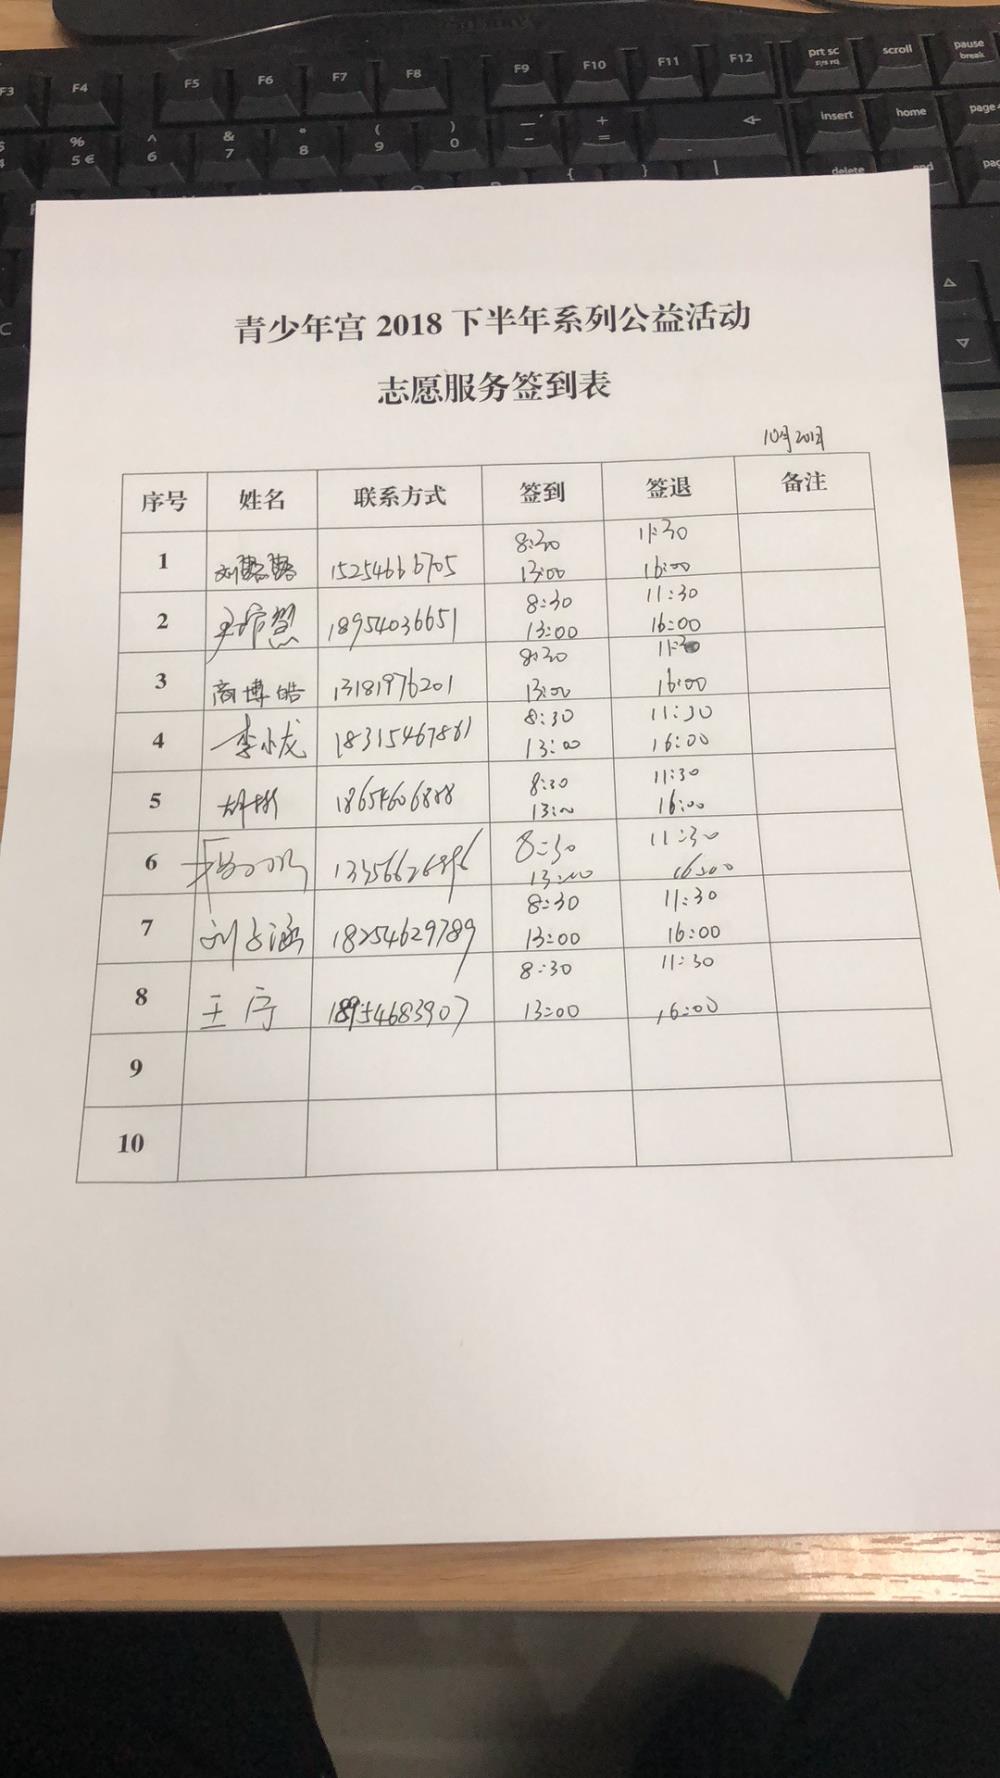 F3 F4 F5 F6 F7 F8 F9 F10 F11 F12 prt sc sys rq scroll pause break
% 5 € ^ 6 & 7 * 8 ( 9 ) 0 — - + = insert home page
delete end
青少年宫 2018 下半年系列公益活动
志愿服务签到表
10月20日
序号 姓名 联系方式 签到 签退 备注
8:30 11:30
1 15254666705 13:00 16:00
8:30 11:30
2 18954036651 13:00 16:00
8:30 11:30
3 商博皓 13181976201 13:00 16:00
8:30 11:30
4 李小龙 18315467861 13:00 16:00
8:30 11:30
5 18654606888 13:00 16:00
8:30 11:30
6 13356626896 13:00 16:00
8:30 11:30
7 刘子涵 18254629789 13:00 16:00
8:30 11:30
8 王宁 18954683907 13:00 16:00
9
10